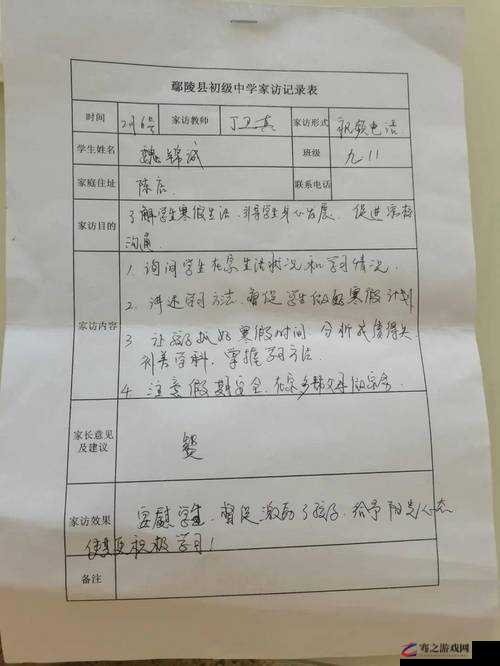 鄢陵县初级中学家访记录表
时间 2月6号 家访教师 丁卫真 家访形式 视频电话
学生姓名 魏锦诚 班级 九11
家庭住址 陈店 联系电话
家访目的 了解学生寒假生活,引导学生身心发展,促进家校
沟通
家访内容
1. 询问学生在家生活状况和学习情况.
2. 讲述学习方法,督促学生做好寒假计划
3. 让孩子抓好寒假时间,分析成绩得失
补差学科,掌握学习方法.
4. 注意假期安全,在家多帮父母做家务
家长意见
及建议
家访效果 安慰学生,督促激励了孩子,给予阳光心态
使其更积极学习!
备注
骞之游戏网